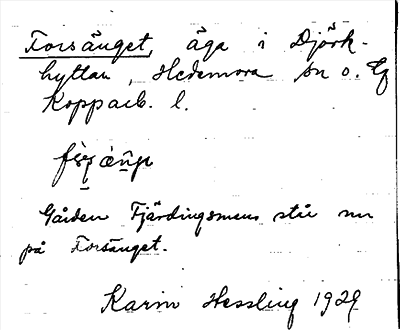 Forsänget, äga i Djörk-
hyttan, Hedemora sn o. 
Kopparb. l.
Gården Fjärdingsmens står nu
på Forsänget.
Karin Hessling 1929